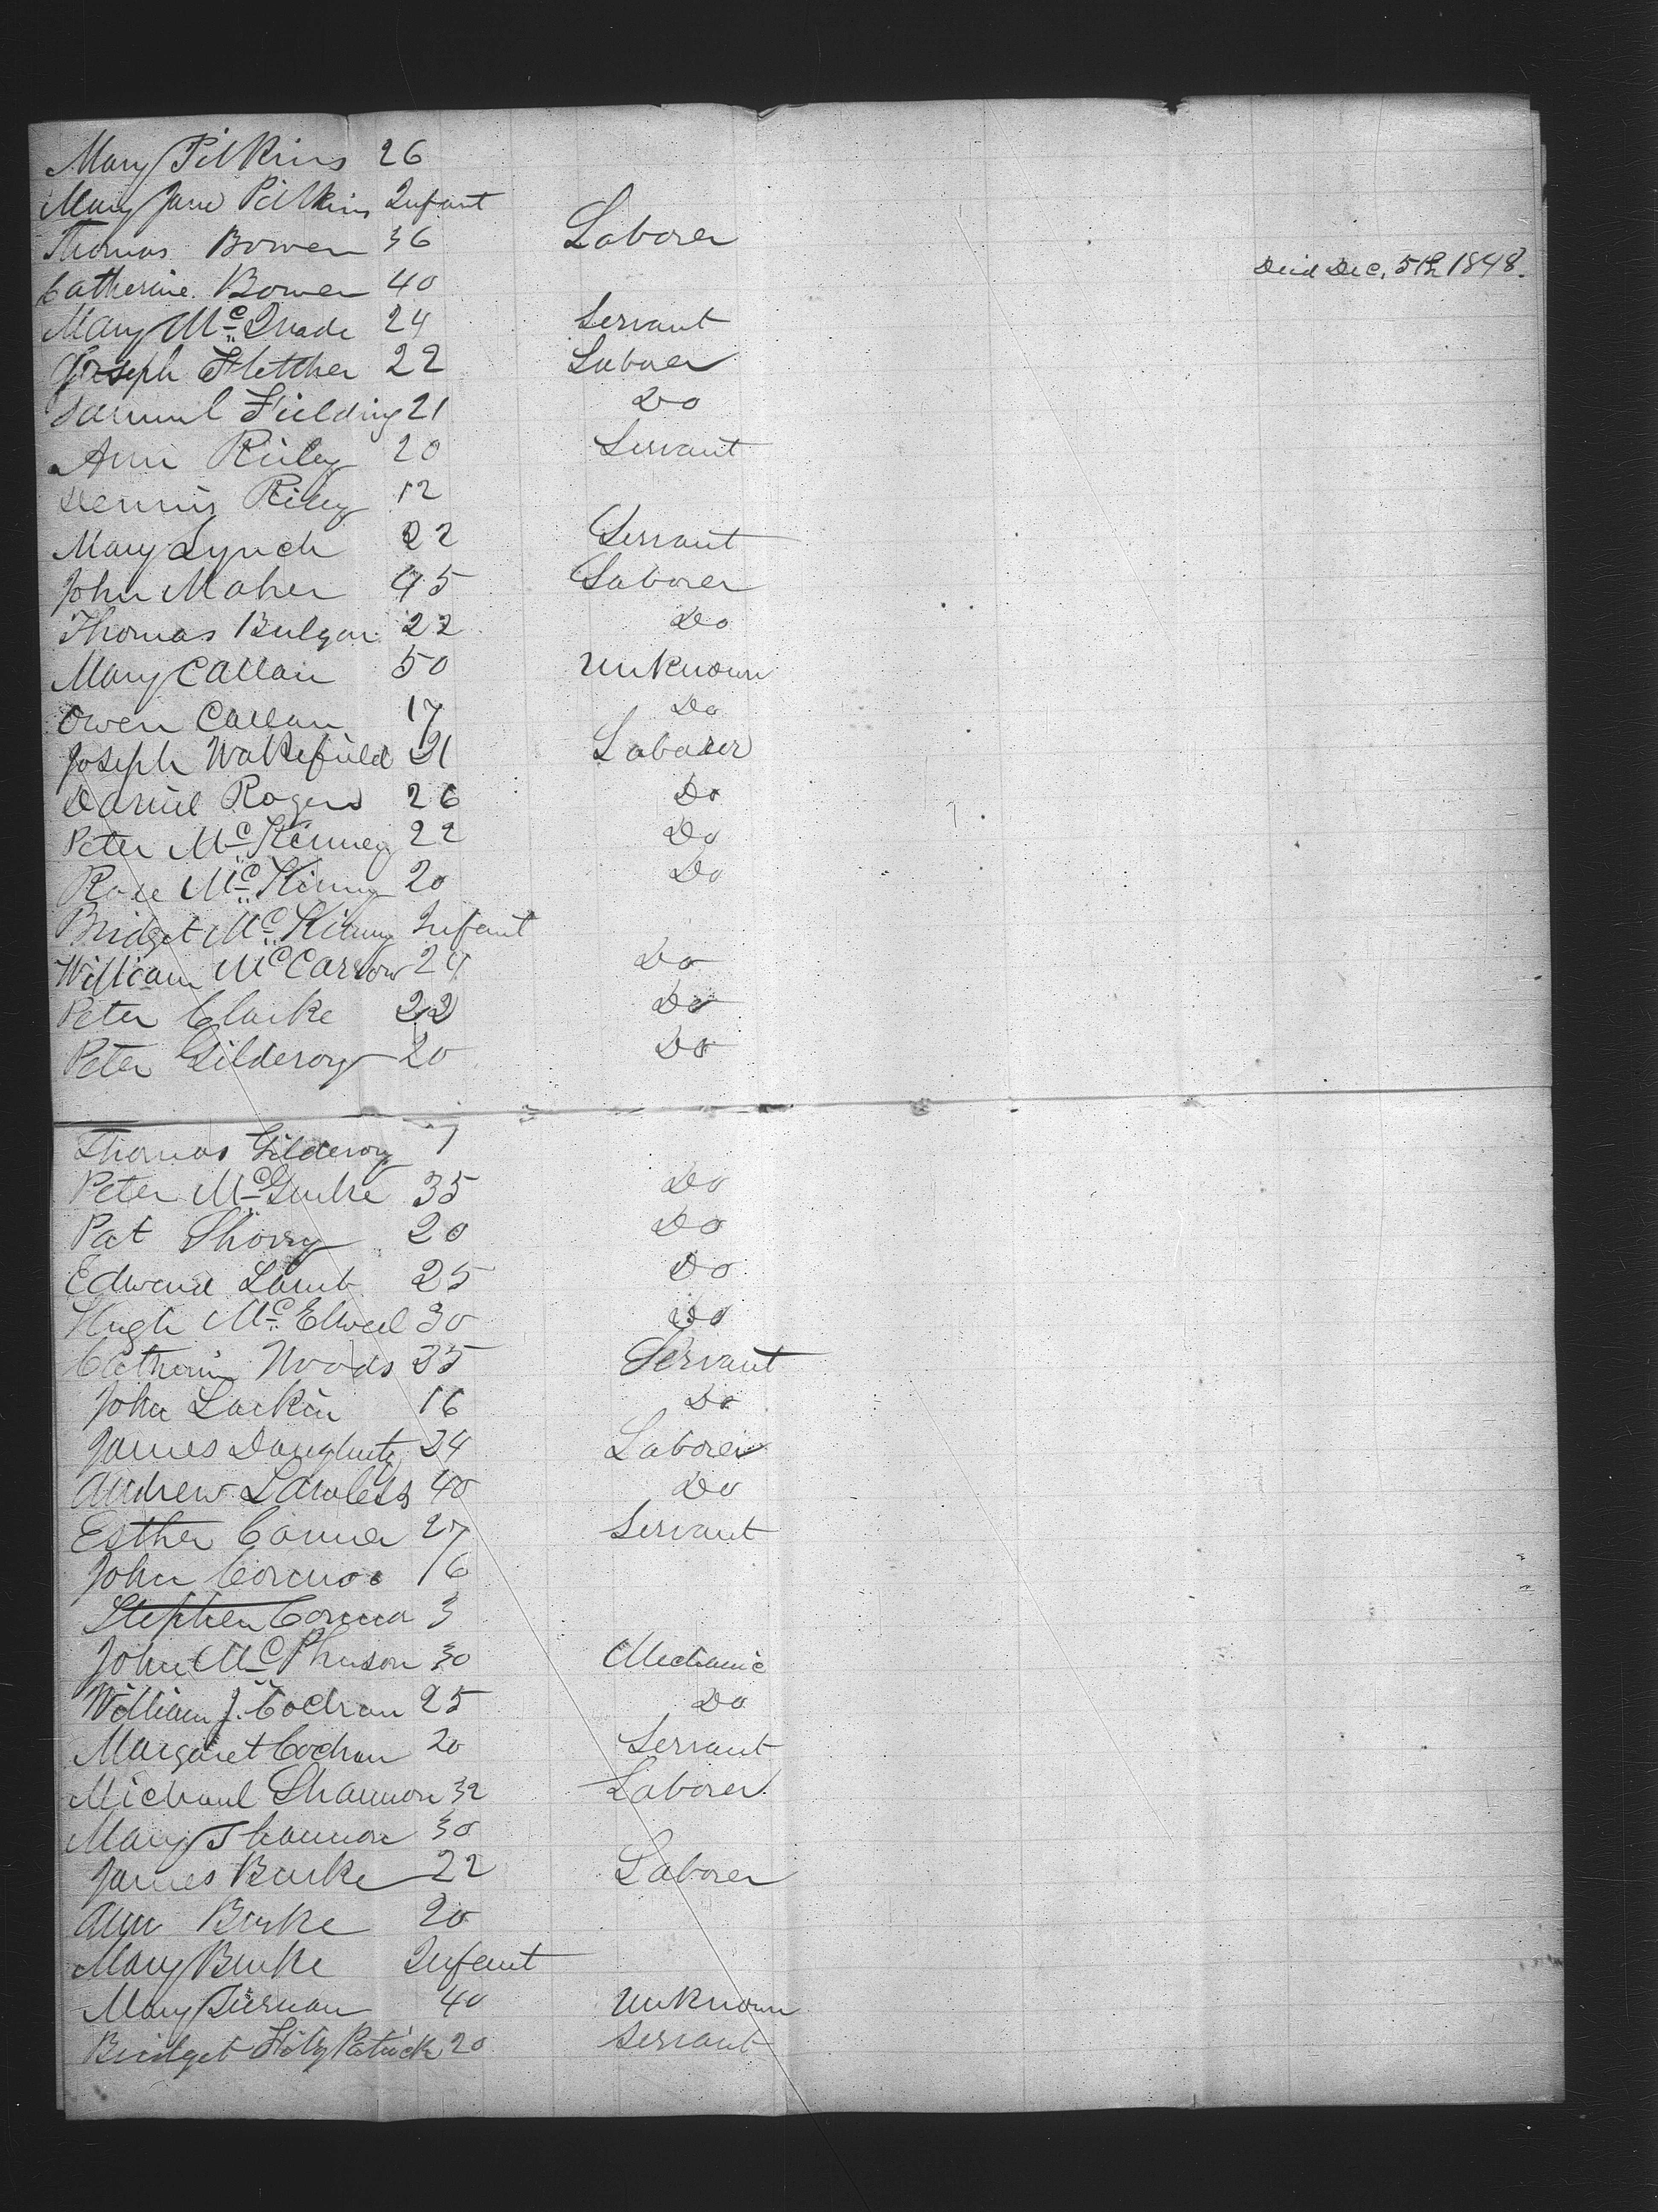 Mary Pilkins 26
Mary Jane Pilkins Infant
Thomas Bowen 36 Laborer
Catherine Bowen 40 Died Dec. 5th 1848.
Mary McQuade 24 Servant
Joseph Fletcher 22 Laborer
Samuel Fielding 21 Do
Ann Riley 20 Servant
Dennis Riley 12
Mary Lynch 22 Servant
John Maher 45 Laborer
Thomas Bulgan 22 Do
Mary Callan 50 Unknown
Owen Callan 17 Do
Joseph Wakefield 21 Laborer
Daniel Rogers 26 Do
Peter McKenney 22 Do
Rose McKinny 20 Do
Bridget McKinny Infant
William McCarrow 24 Do
Peter Clarke 22 Do
Peter Gilderoy 20 Do
Thomas Gilderoy 7
Peter McGurke 35 Do
Pat Shorry 20 Do
Edward Lamb 25 Do
Hugh McElweel 30 Do
Catherin Woods 35 Servant
John Larkin 16 Do
James Daugherty 24 Laborer
Andrew Lawless 40 Do
Esther Conner 27 Servant
John Connor 16
Stephen Conner 3
John McPherson 30 Mechanic
William J. Cochran 25 Do
Margaret Cochran 20 Servant
Michael Shannon 32 Laborer
Mary Shannon 30
James Burke 22 Laborer
Ann Burke 20
Mary Burke Infant
Mary Tiernan 40 Unknown
Bridget FitzPatrick 20 Servant